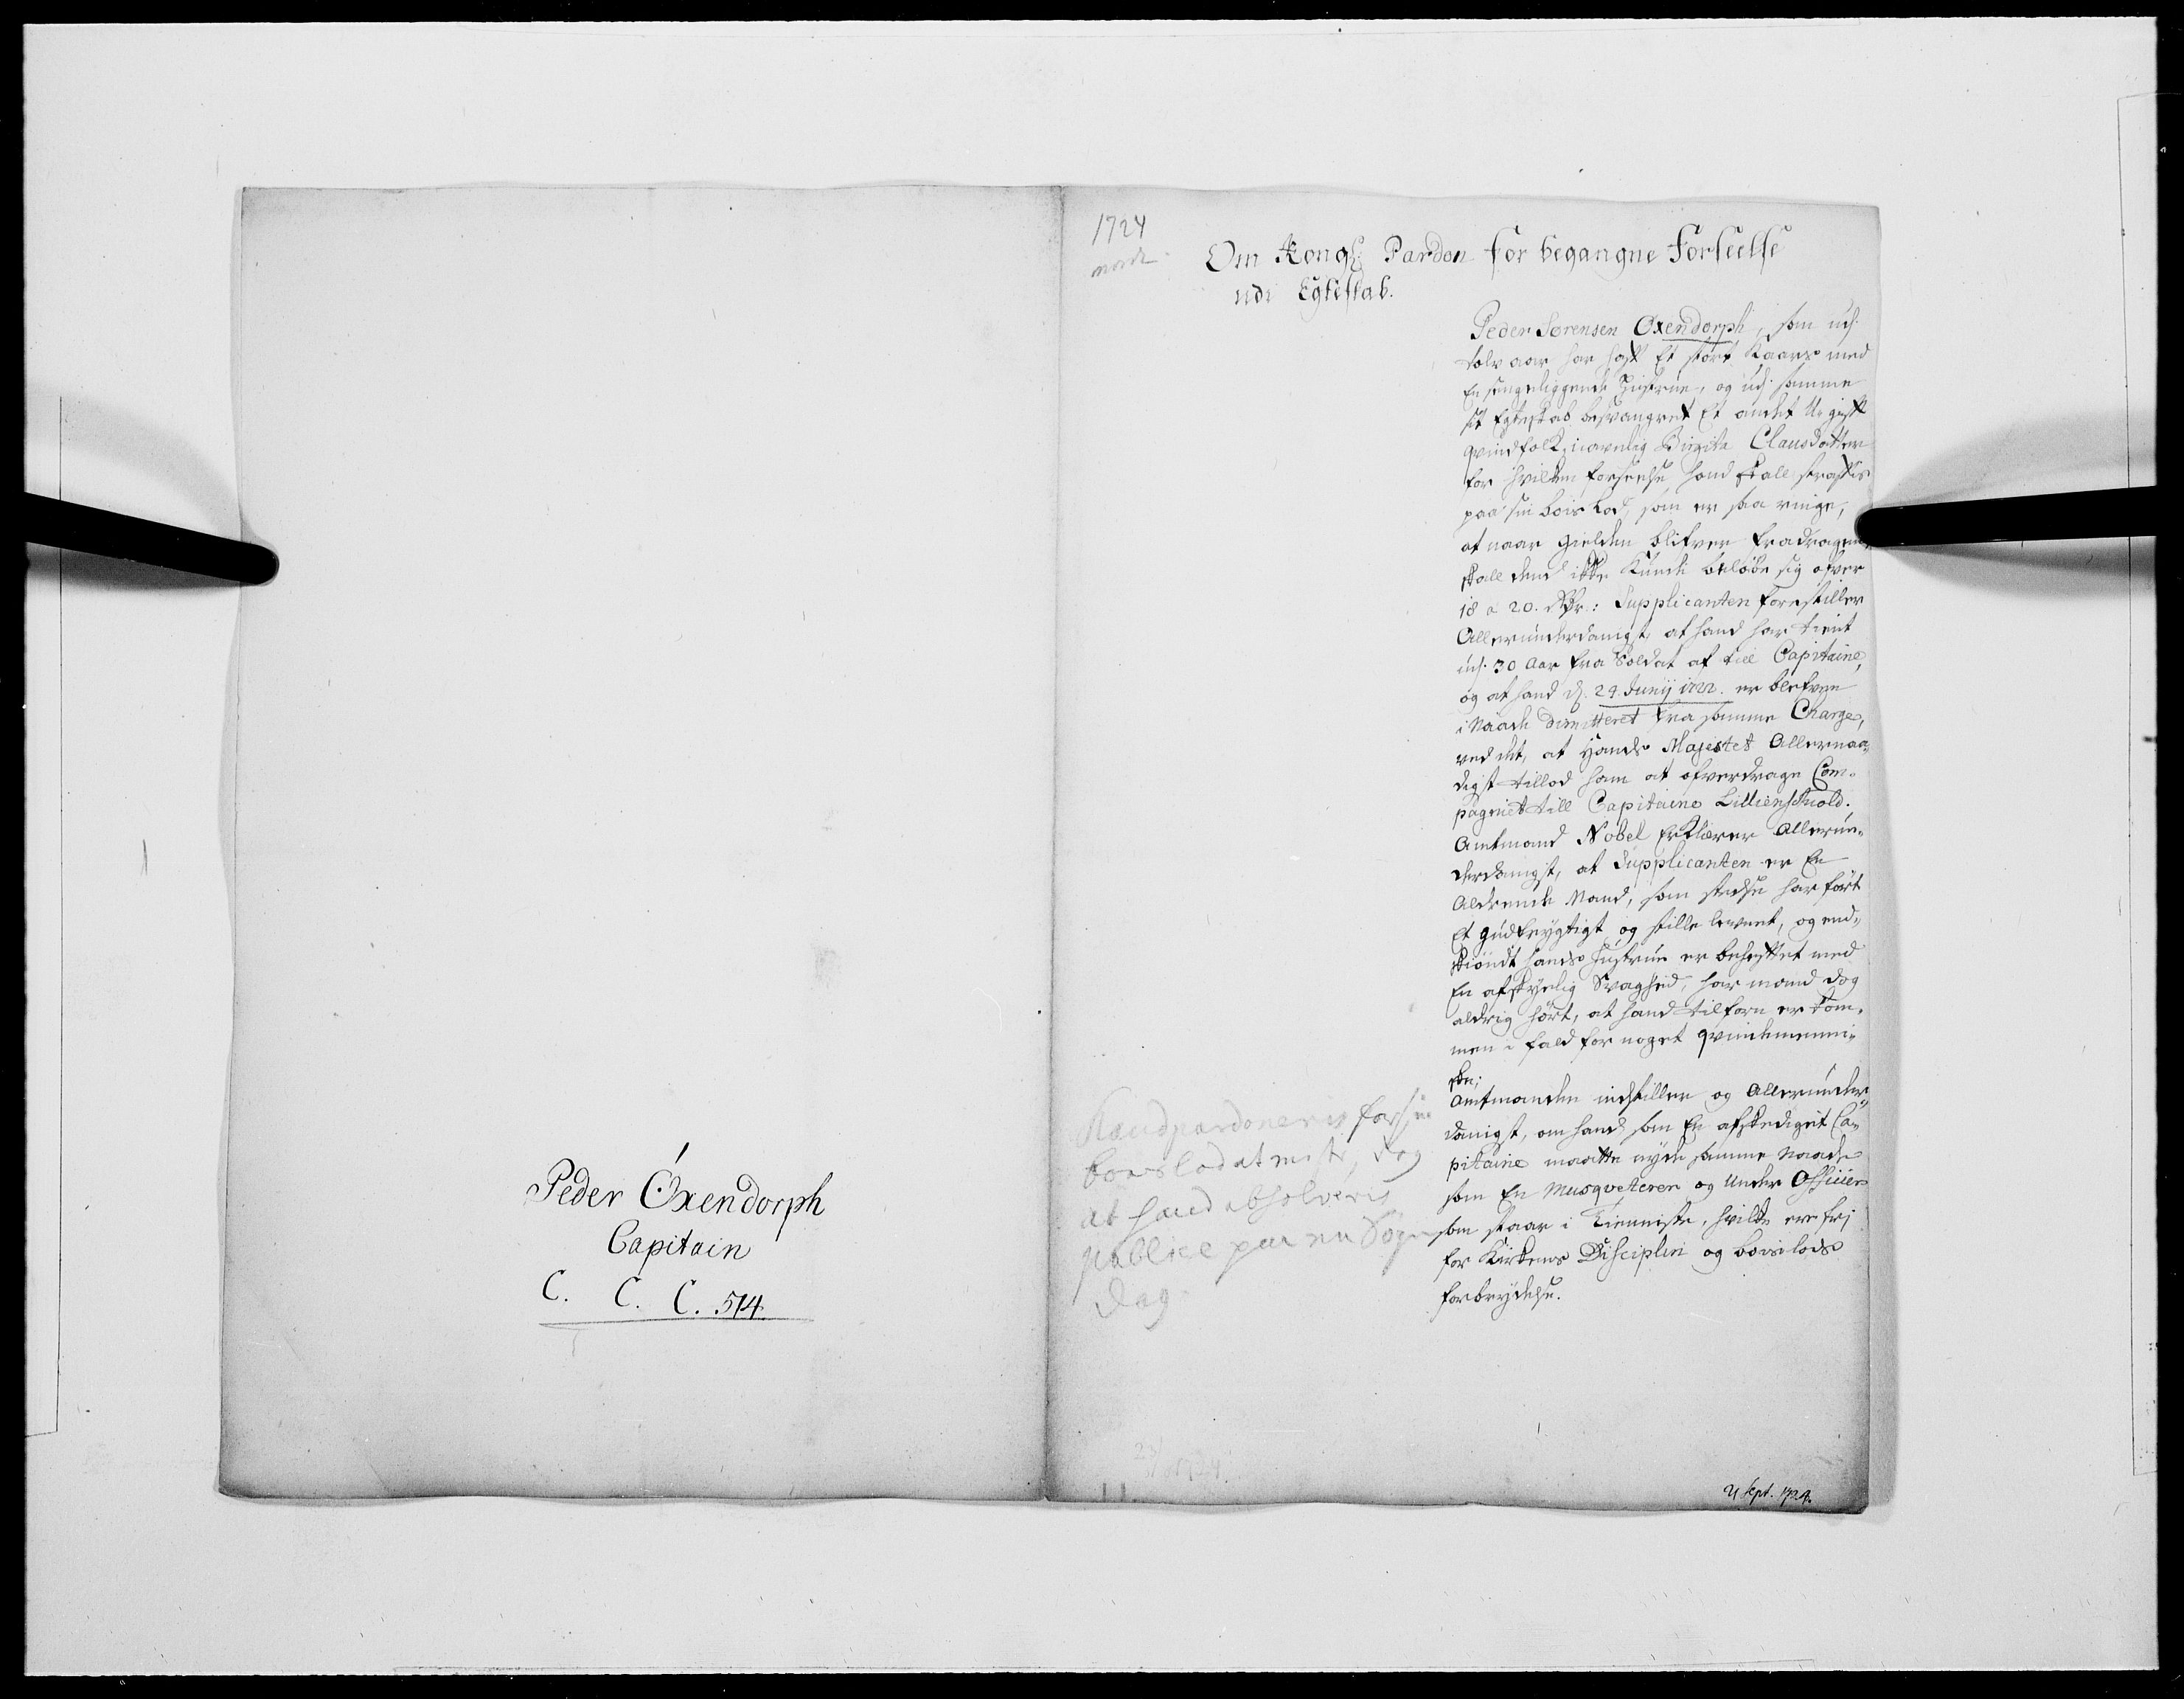 Peder Öxendorph
Capitain
C. C. C. 514.
1724
Om Kongl: Pardon for begangne Forseelse
udi Egteskab.
Peder Sørensen Oxendorph, som udj
tolv aar har haft Et stort Kaars med
En sengeliggende Hustrue, og udj samme
sit Egteskab besvangret Et andet Ugift
qvindfolk, navnlig Birgita Clausdatter
for hvilken forseelse hand skall straffes
paa sin boes Lod, som er saa ringe,
at naar gielden blifver fradragen,
skall dend ikke kunde beløbe sig ofver
18 a 20. Rdr: Supplicanten forestiller
Allerunderdanigst, at hand har tient
udj 30 Aar fra Soldat af till Capitaine,
og at hand d. 24. Junij 1722. er blefven
i Naade dimitteret fra samme Charge,
ved det, at Hands Majestet Allernaa-
digst tillod ham at ofverdrage Com-
pagniet till Capitaine Lillienskiold.
Amtmand Nobel Erklærer Allerun-
derdanigst, at Supplicanten er En
Aldrende Mand, som stedse har ført
Et gudfrygtigt og stille levnet, og end-
skiøndt hands Hustrue er behefftet med
En afskyelig Svaghed, har mand dog
aldrig hørt, at hand tilforn er kom-
men i fald for noget qvindemenni-
ske;
Amtmanden indstiller og Allerunder-
danigst, om hand som En afskediget Ca-
pitaine maatte nyde samme Naade
som En Musqveterer og Under Officier
som staar i Tienniste, hvilke ere frj
for Kirkens Disciplin og boeslods
forbrydelse.
Hand pardoneris for sin
boeslod at miste, dog
at hand absolveris
publice paa en Søgne
dag
21 Sept. 1724.